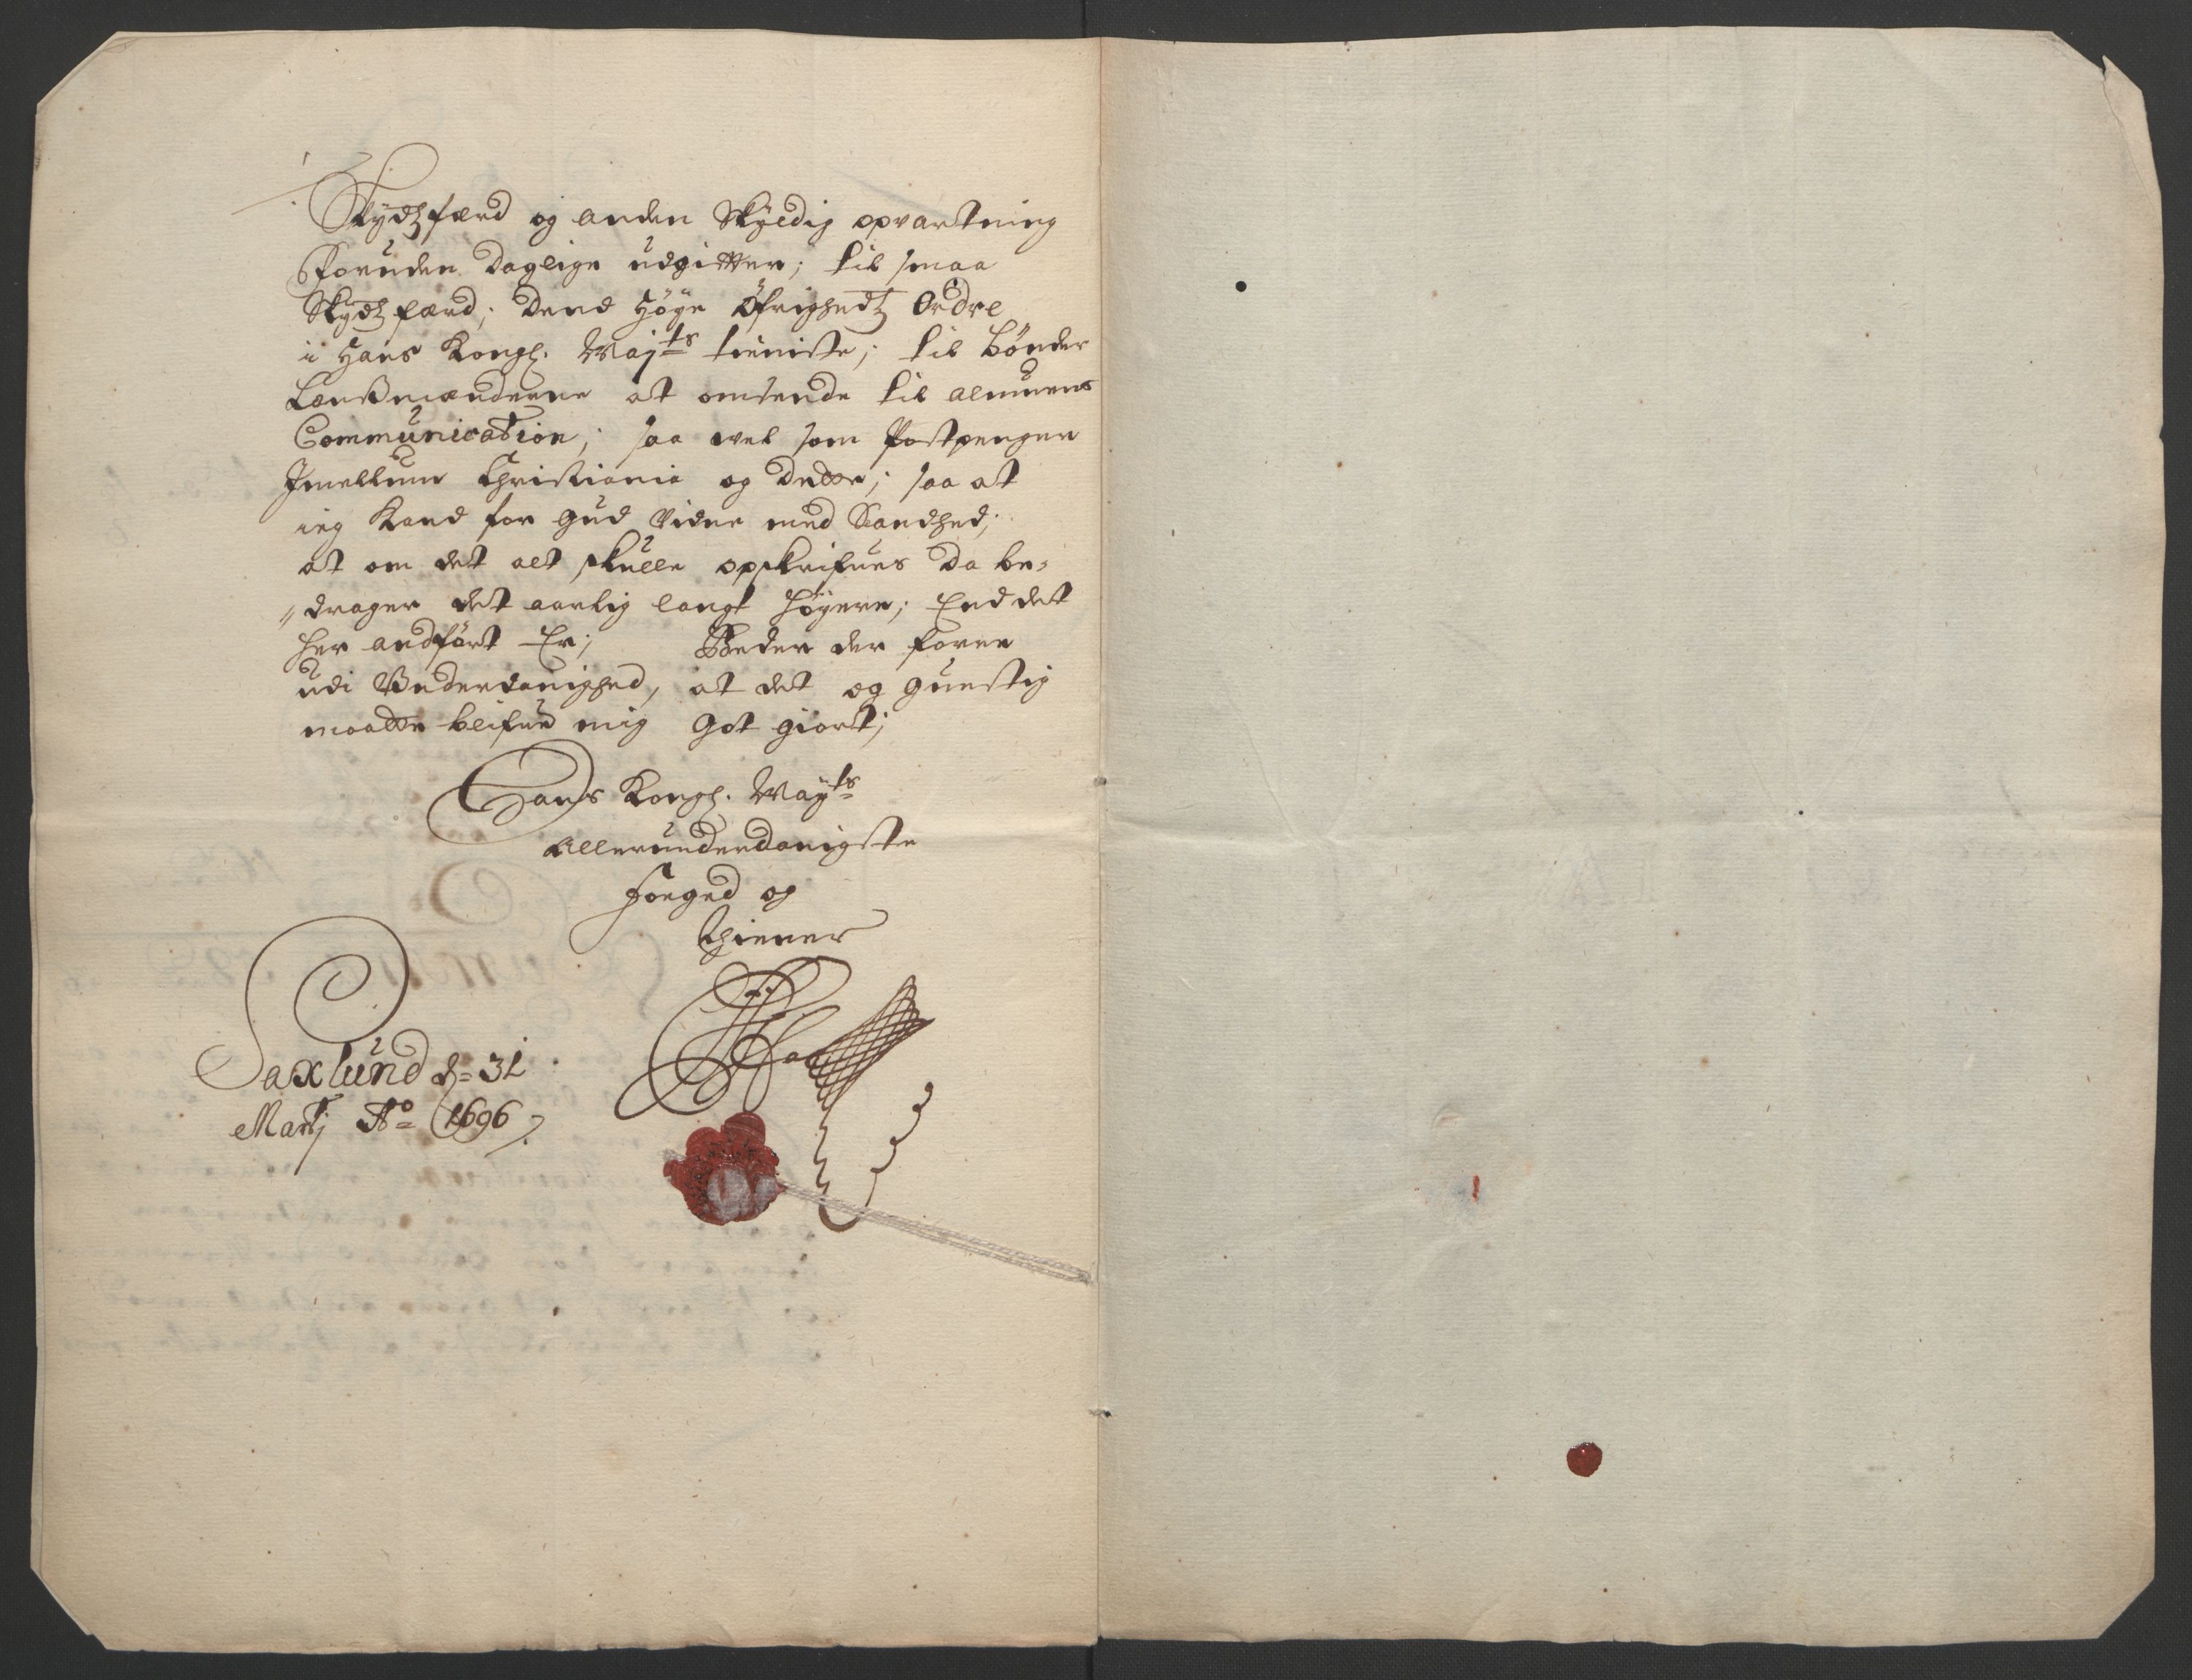 Skydtzferd og anden Skyldig opvartning
Foruden Daglige udgifter; till smaa
Skydtz færd; Dend Høye Öfrighedtz Ordre
i Hans Kongl. Mayts tieniste; till bønder
Lænßmænderne at omsende till almuens
Communication; saa vel som Postpenger
Imellum Christiania og dette; saa at
ieg Kand for Gud Vidne med Sandhed;
at om det alt skulle opskrifues da be-
"drager det aarlig langt høyere; End det
her andført Er; Beder der forre
udi Underdanighed, at det og gunstig
maatte blifue mig Got giort;
Hans Kongl. Mayts
Allerunderdanigste
Foeged og
Thiener
Saxlund d= 31
Martj Ao 1696